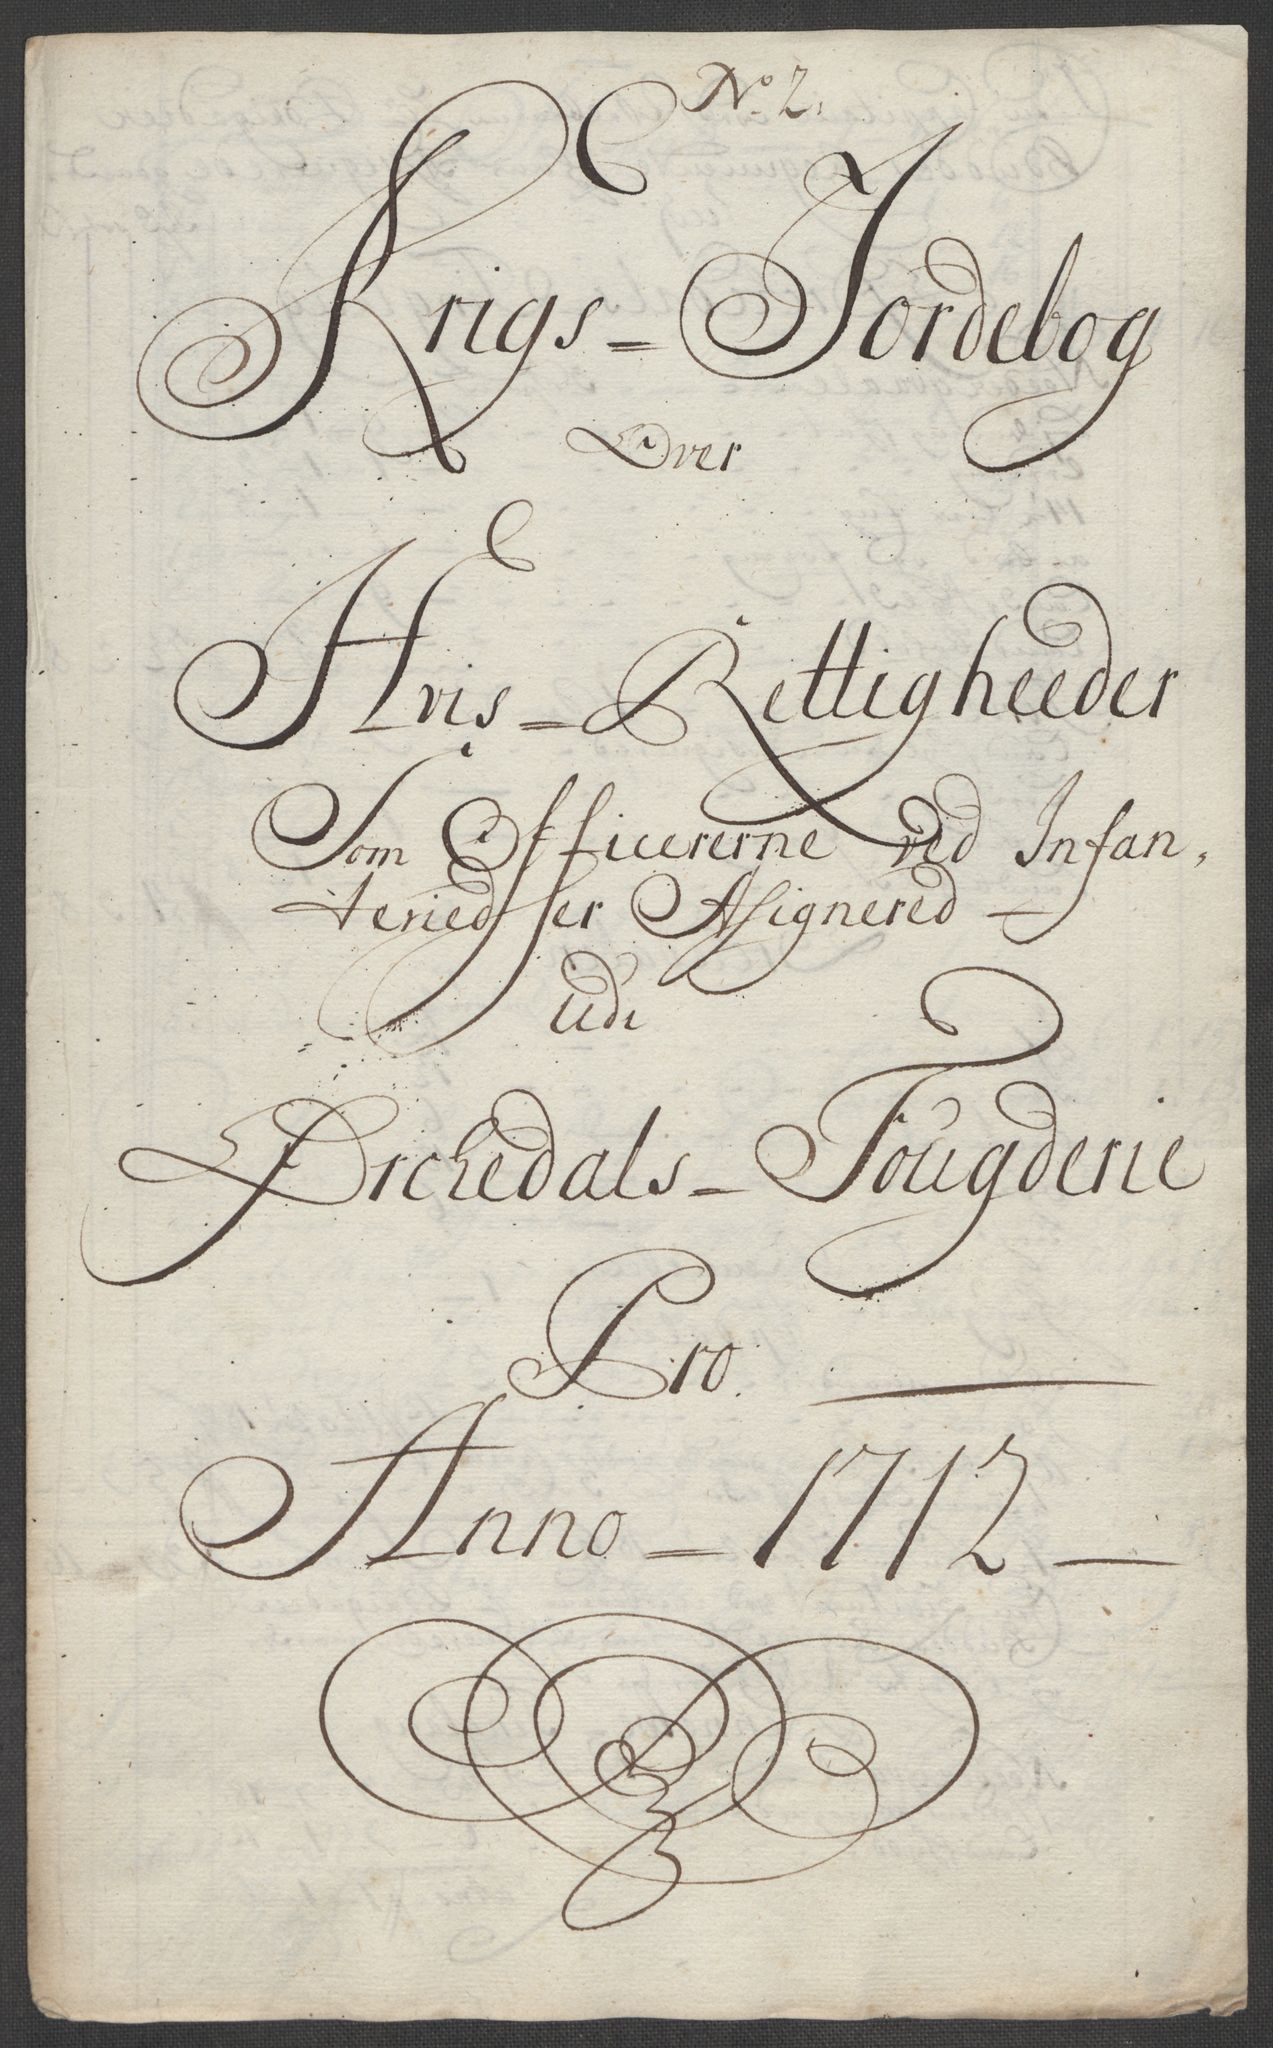 No 2.
Krigs = Jordebog
Over
Hvis = Rettigheeder
Som Officererne ved Infan,
teried er Assignered
Udi
Orchedals = Fougderie
Pro
Anno = 1712